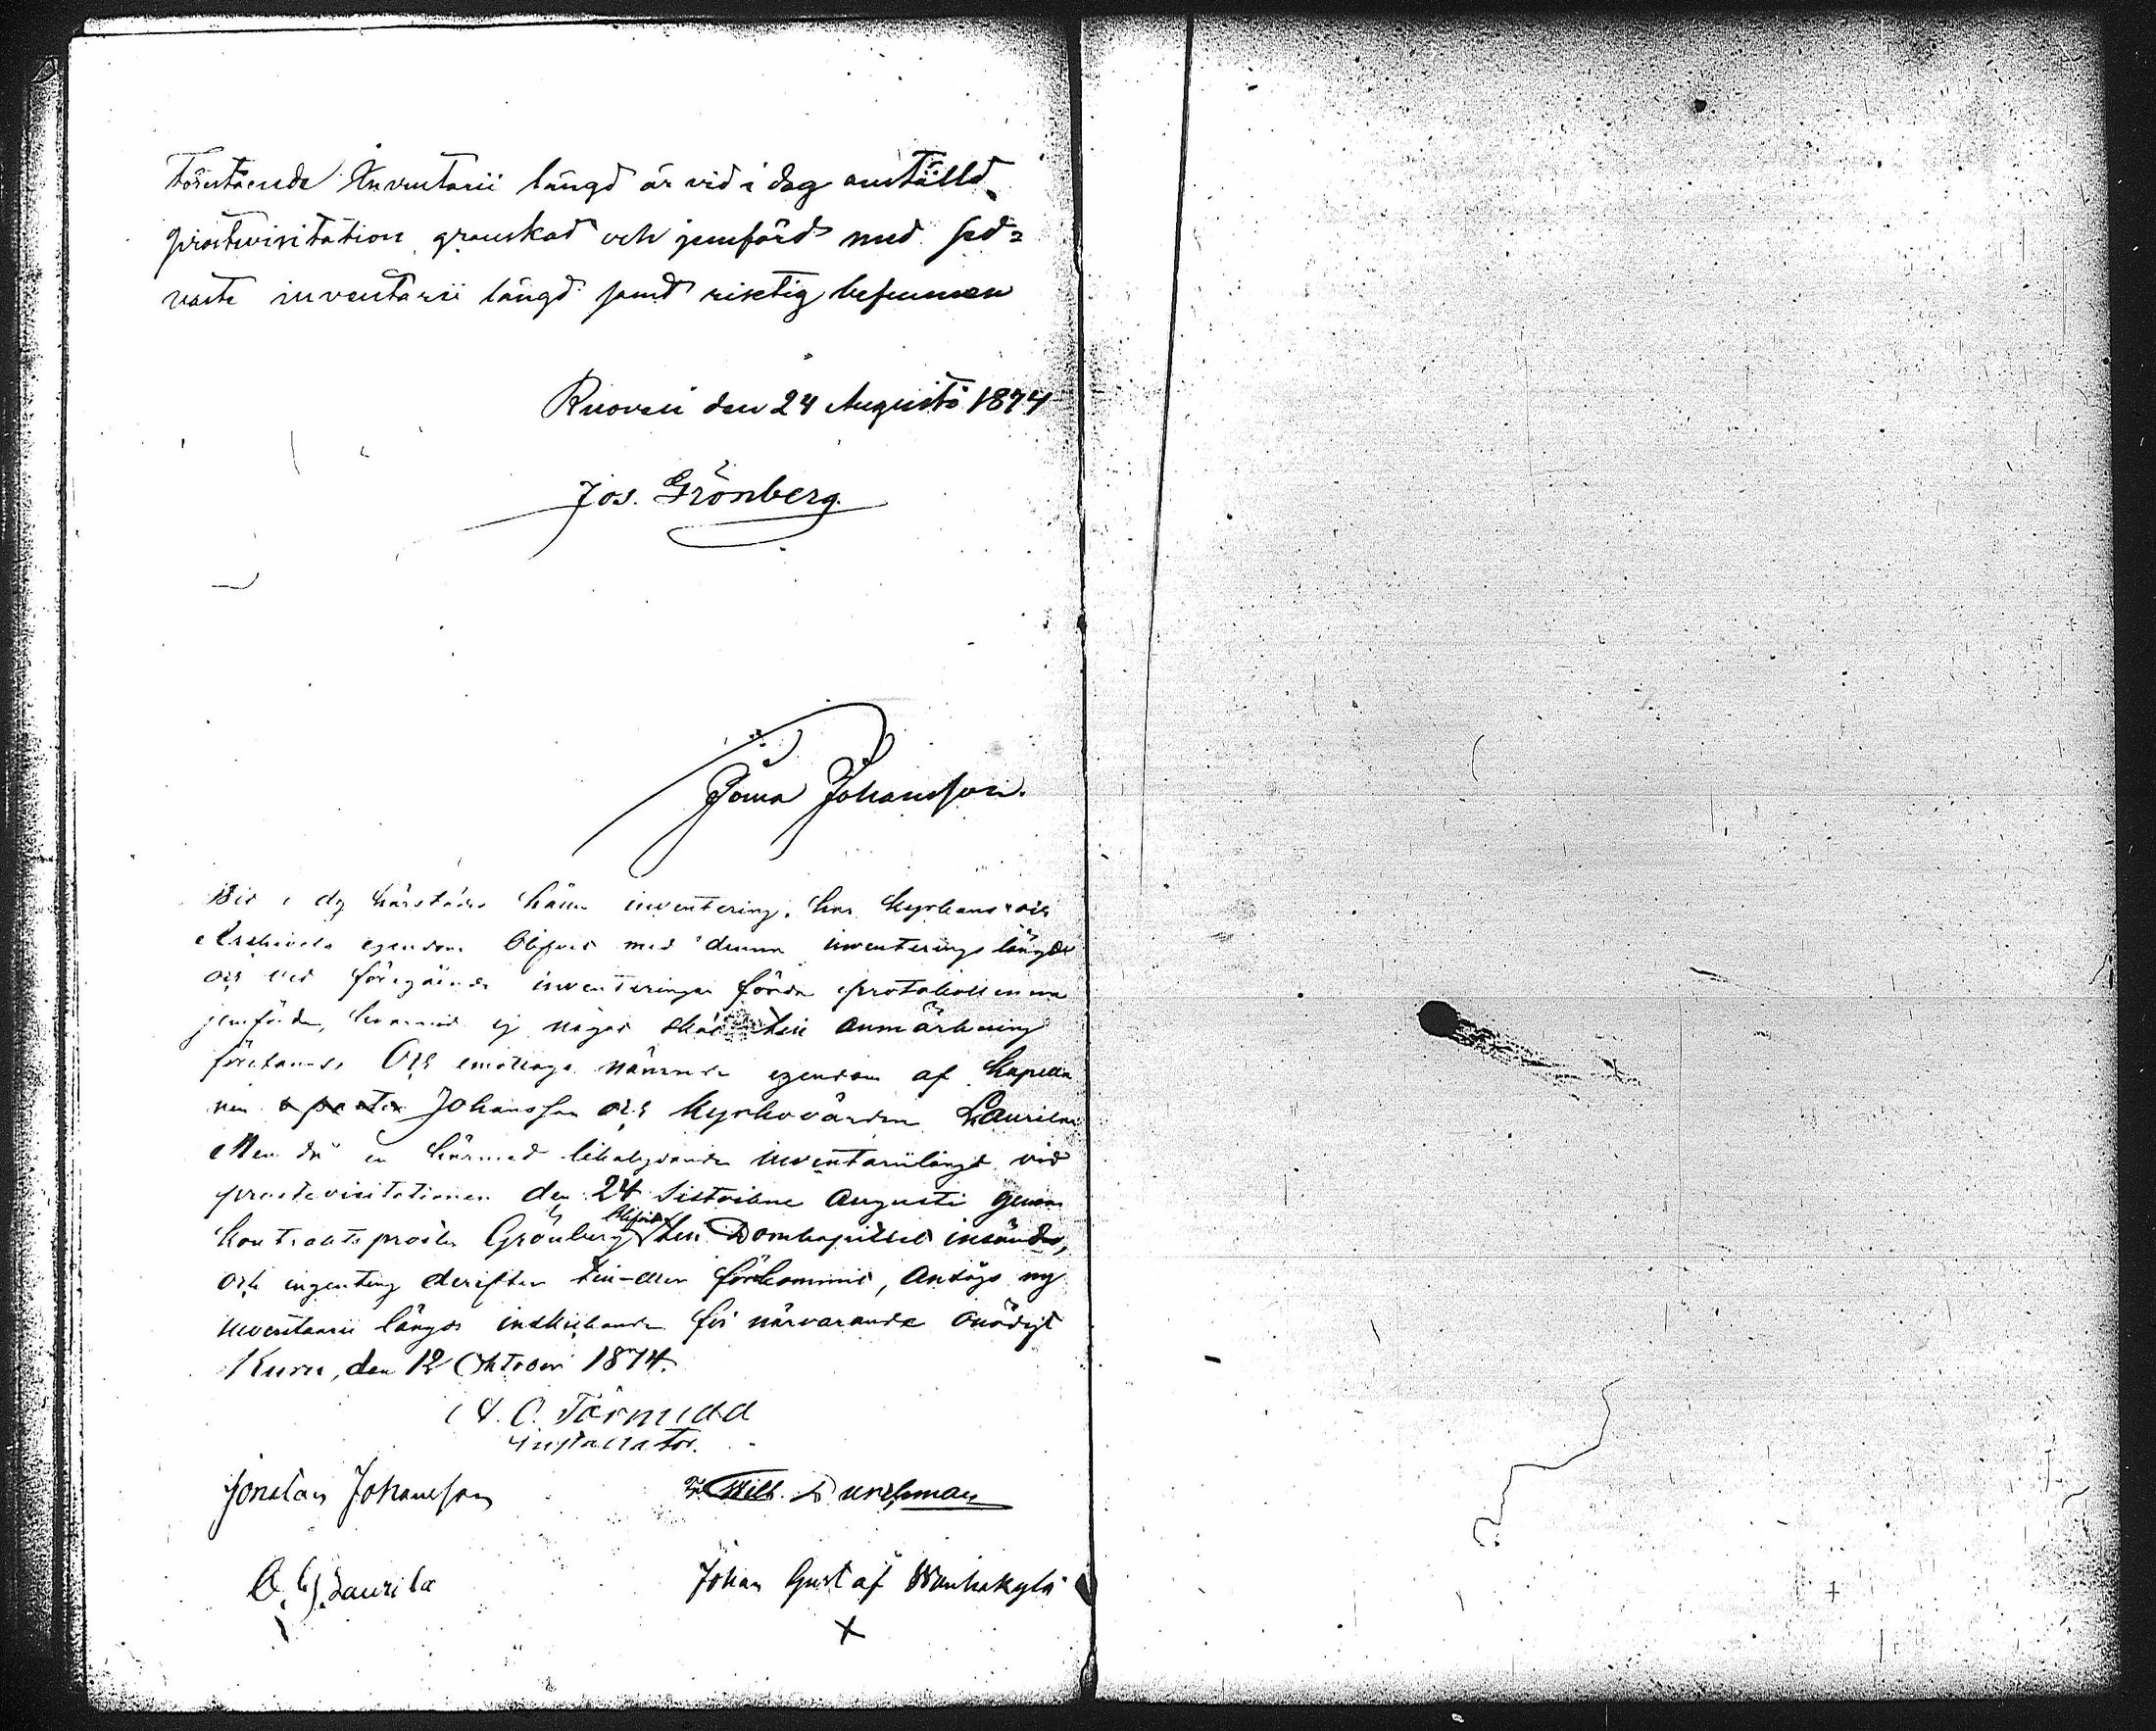 Förestående Inventarii längd är vid i dag anställd
prostvisitation granskad och jemförd med sed=
naste inventarii längd samt riktig befunnen
Ruovesi den 24 Augusti 1874
Jos. Grönberg.
Johansson.
Vid i dag härstädes hållen inventering, har kyrkans och
Archivets egendom blifvit med denna inventerings längd
och vid föregående inventeringar förda protokollerna
jemförda, hvarvid ej något skäl till anmärkning
förekommit. Och emottogs nämnde egendom af Kapella
nen Johansson och Kyrkovärden Laurila
Men då en härmed likalydande Inventariilängd vid
prostevisitationen den 24 sistvikne Augusti genom
Kontraktsprosten Grönberg blifvit till Domkapitlet insänd,
och ingenting derefter till-eller förkommit, ansågs ny
inventarii längds inskickande för närvarande onödigt
Kuru, den 12 Oktober 1874.
C. Törnudd
Jonatan Johansson
Wilh. Durchman
O. G. Laurila
Johan Gustaf Wanhakylä
X